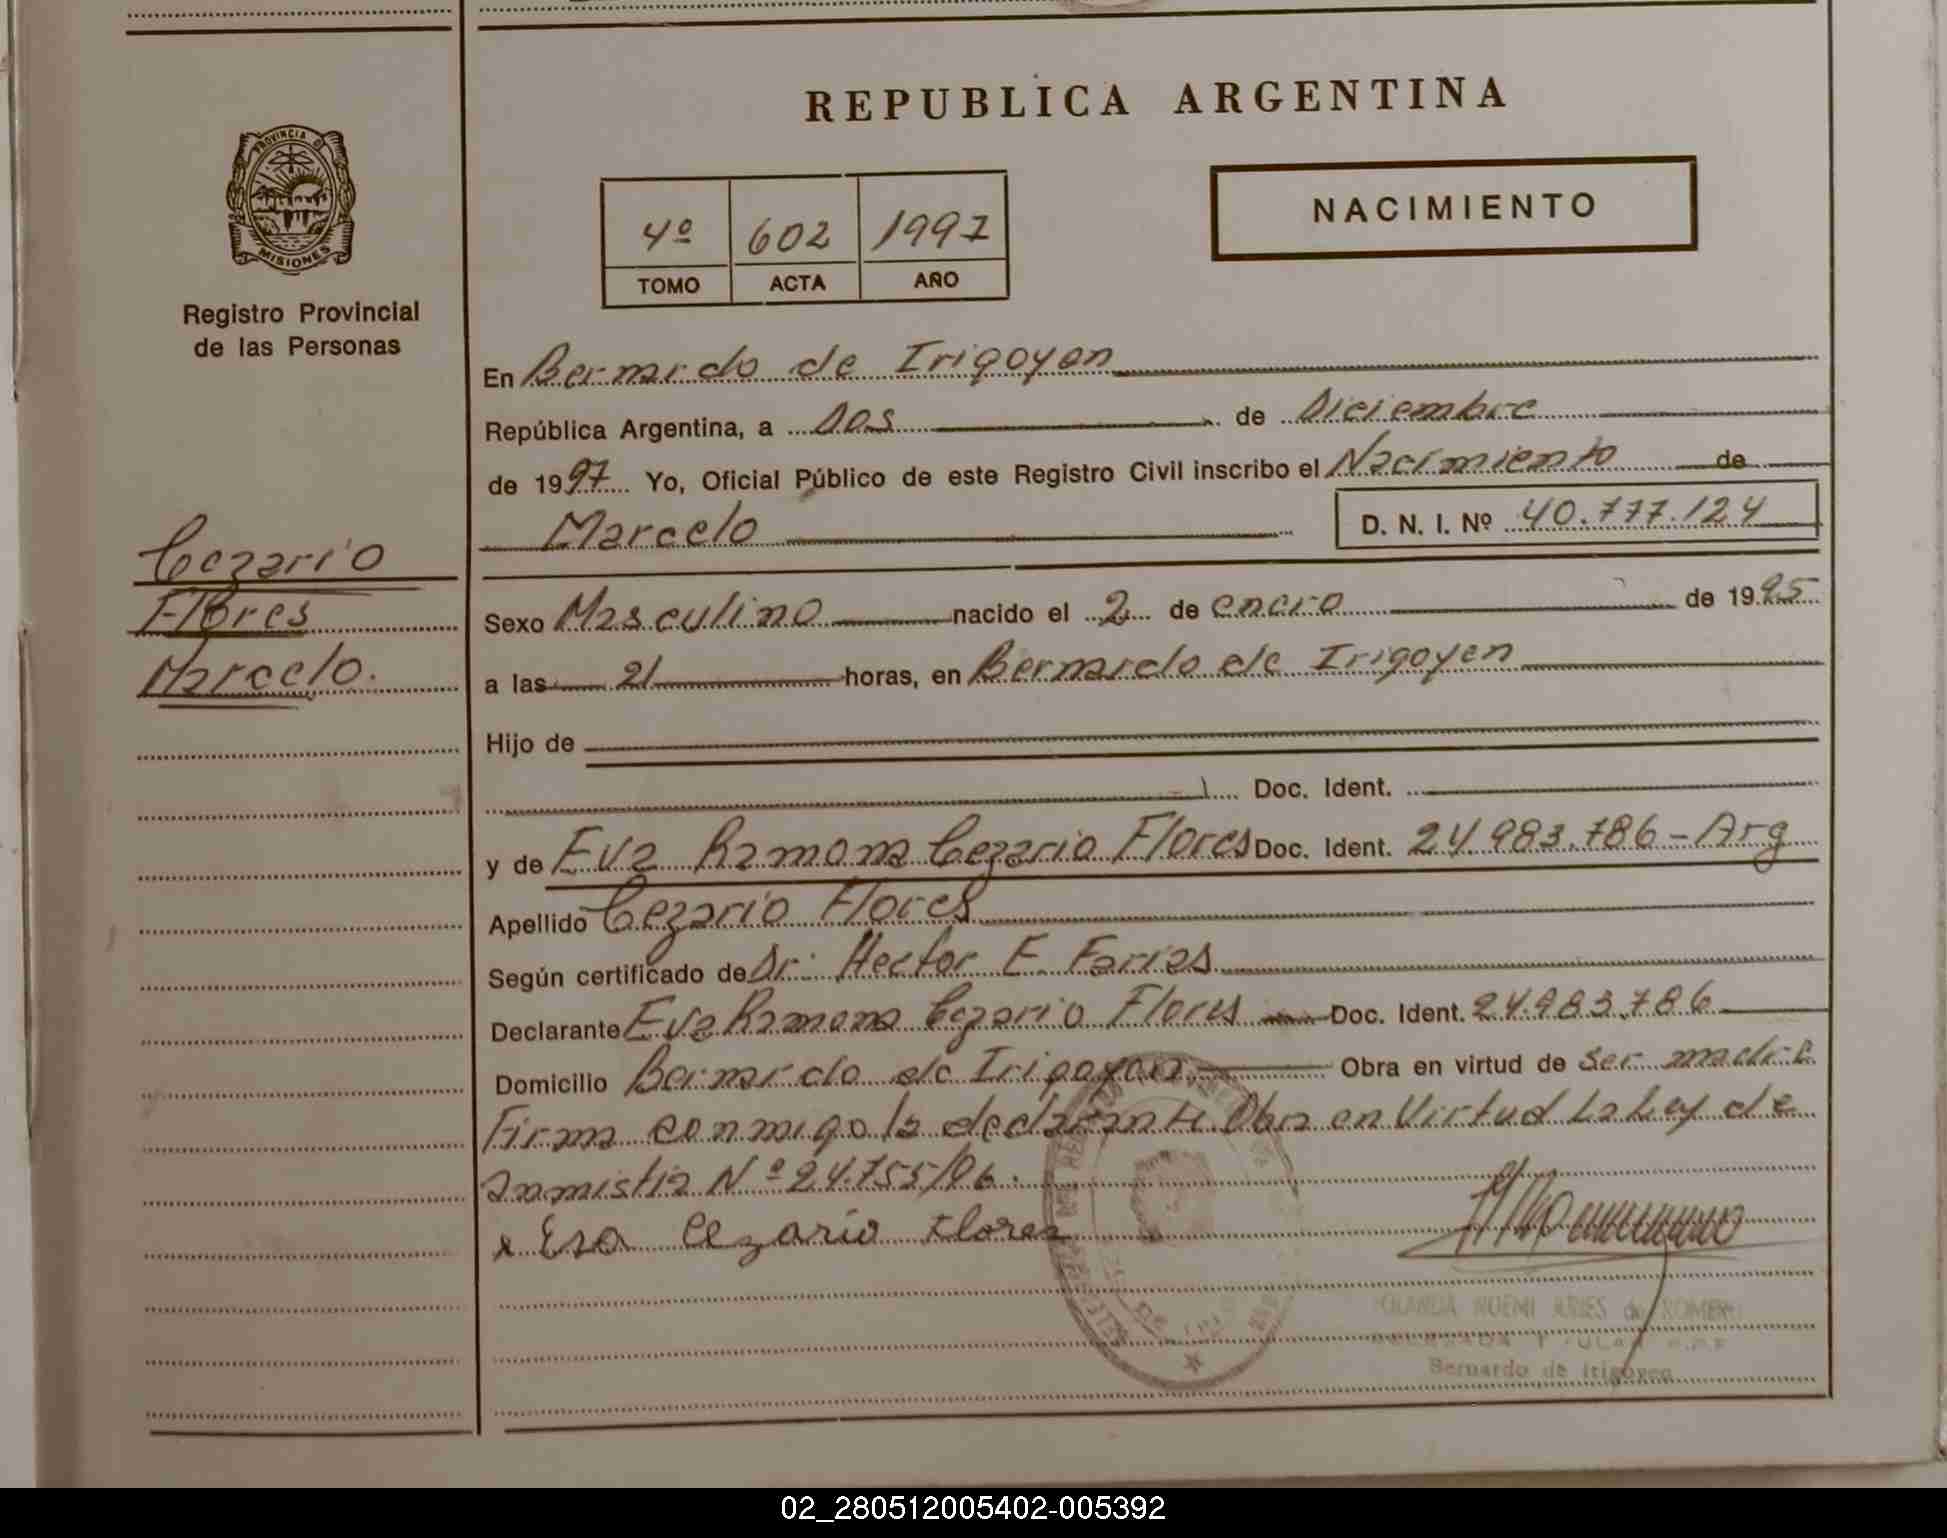 REPUBLICA ARGENTINA
PROVINCIA D
MISIONES
Registro Provincial
de las Personas
4º 602 1997
TOMO ACTA AÑO
NACIMIENTO
En Bernardo de Irigoyen
República Argentina, a Dos de Diciembre
de 1997 Yo, Oficial Público de este Registro Civil inscribo el Nacimiento de
Marcelo D. N. I. Nº 40.777.124
Cezario
Flores
Marcelo.
Sexo Masculino nacido el 2 de enero de 1995
a las 21 horas, en Bernardo de Irigoyen
Hijo de
Doc. Ident.
y de Eva Ramona Cezario Flores Doc. Ident. 24.983.786-Arg
Apellido Cezario Flores
Según certificado de Dr. Hector E. Farias
Declarante Eva Ramona Cezario Flores Doc. Ident. 24.983.786
Domicilio Bernardo de Irigoyen Obra en virtud de ser madre
Firma conmigo la declarante. Obra en Virtud La Ley de
Anmistia Nº 24.755/96.
x Eva Cezario Flores
NOEMI ARIES de ROMERO
Bernardo de Irigoyen
02_280512005402-005392